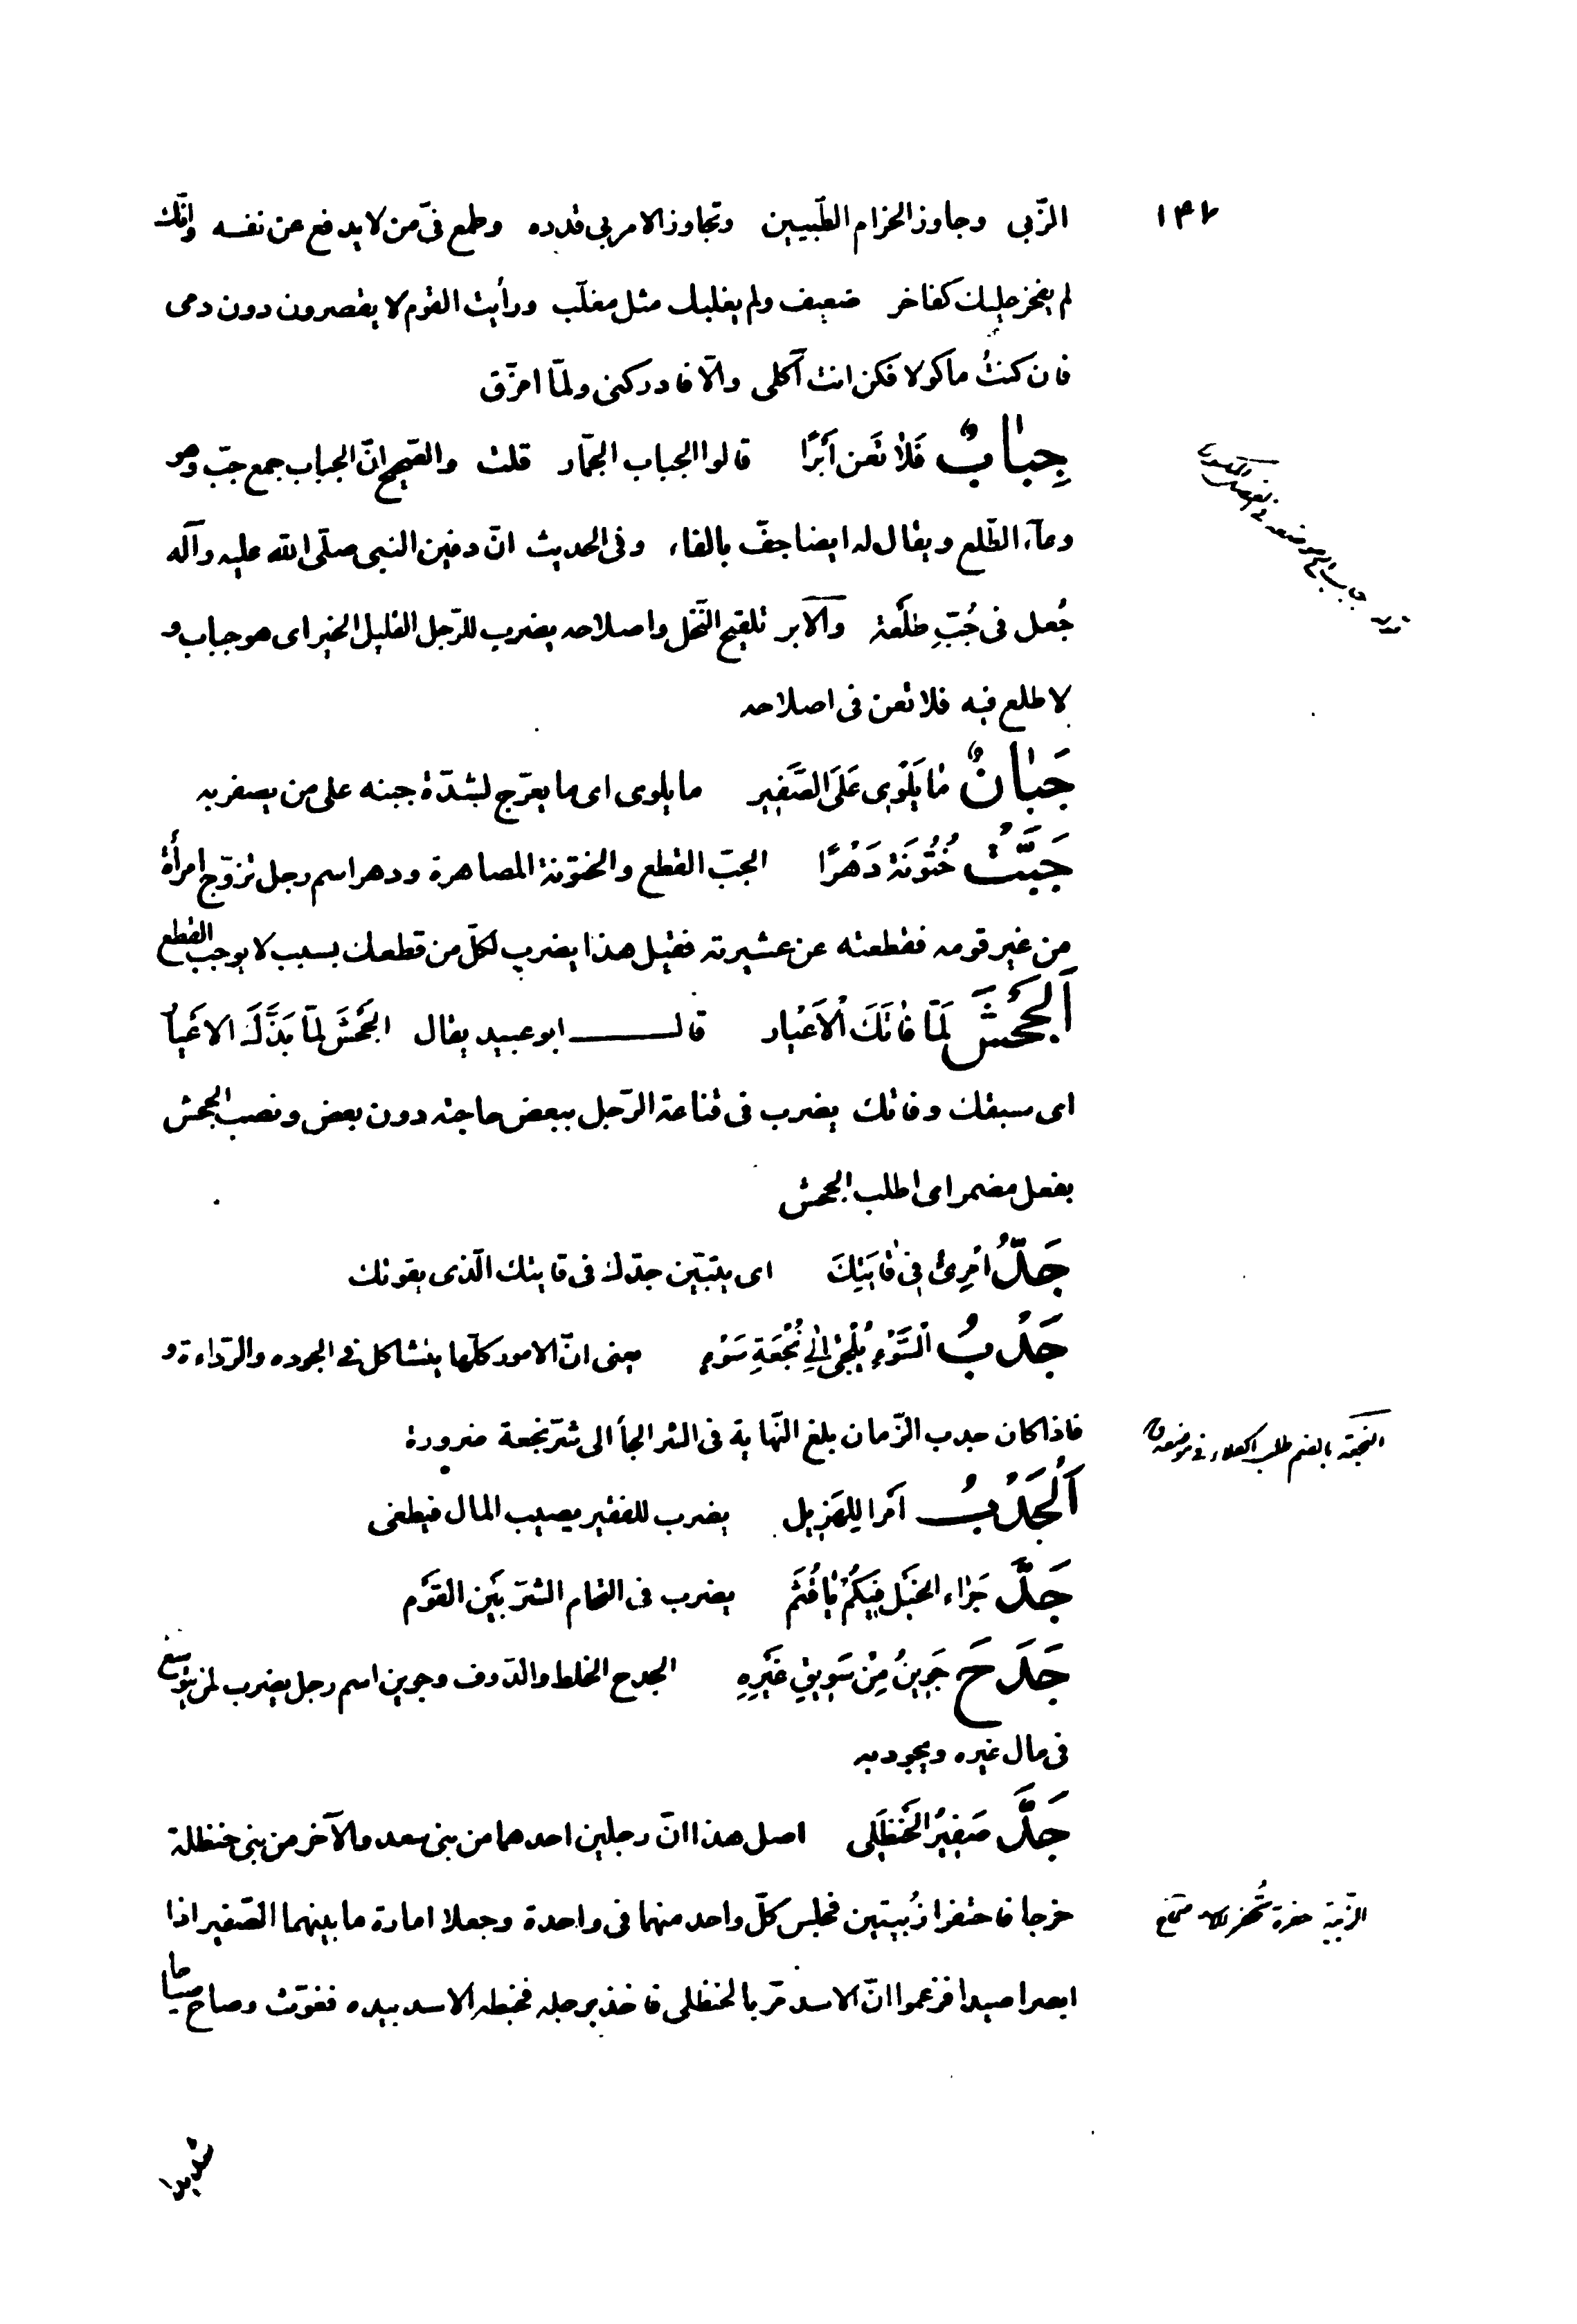 ١٣٧
الزّبى وجاوز الحزام الطّبيين وتجاوز الامر بى قدره وطمع فىّ من لا يدفع عن نفسه وانّك
لم يفخر عليك كفاخر ضعيف ولم يغلبك مثل مغلّب ورأيت القوم لا يقصرون دون دمى
فان كنتُ ماكولا فكن انت آكلى والّا فادركنى ولمّا امزّق
جِبٰابٌ فَلاٰ تَعَن اَبْرًا قالوا الجباب الجمّار قلت والصّحيح انّ الجباب جمع جبّ وهو
وعآء الطّلع ويقال له ايضا جفّ بالفاء وفى الحديث انّ دفين النبى صلّى الله عليه وآله
جُعل فى جُبِّ طلْعة والآبر تلقيح النّخل واصلاحه يضرب للرّجل القليل الخير اى هو جباب و
لا طلع فيه فلا تعن فى اصلاحه
جَبٰانٌ مٰا يَلْوِى عَلَى الصَّفِير ما يلوى اى ما يعرّج لشدّة جبنه على من يصفر به
جَبَّتْ خُتُونَة دَهْرًا الجبّ القطع والختونة المصاهرة ودهر اسم رجل تزوّج امرأة
من غير قومه فقطعته عن عشيرته فقيل هذا يضرب لكلّ من قطعك بسبب لا يوجب القطع
اَلجَحْشَ لَمّا فٰاتَكَ الْاَعْيار قالــ ابو عبيد يقال الجَحْشَ لمّا بَذَّكَ الاعْيارُ
اى سبقك وفاتك يضرب فى قناعة الرّجل ببعض حاجته دون بعض ونصب الجحش
بفعل مضمر اى اطلب الجحش
جَدُّ امْرِئ فِى قٰايَتِكَ اى يتبيّن جدّك فى قايتك الّذى يقوتك
جَدْبُ السَّوْءِ يُلْجِئُ اِلٰى نُجْعَةِ سَوْءٍ يعنى انّ الامور كلّها يتشاكل فى الجوده والرّداءة و
فاذا كان جدب الزّمان بلغ النّهاية فى الشر الجأ الى شرّ نجعة ضرورة
النجعة بالضم طلب الكلاء فى موضعه
اَلْجَدْبُ اَمْرا لِلهَزِيل يضرب للفقير يصيب المال فيطغى
جَدَّ جَزٰاء الخَيْل فِيكُمْ يٰا قُثَم يضرب فى التحام الشرّ بَيْن القَوْم
جَدَحَ جَوِينُ مِنْ سَوِيقِ غَيْرِهِ الجدح الخلط والدّوف وجوين اسم رجل يضرب لمن يتوسّع
فى مال غيره ويجود به
جَدَّ صَفِيرُ الحَنْظَلى اصل هذا انّ رجلين احدهما من بنى سعد والآخر من بنى حنظلة
خرجا فاحتفرا زُبيتين فجلس كلّ واحد منهما فى واحدة وجعلا امارة ما بينهما الصّفير اذا
الزّبية حفرة تُحفر للاسد
ابصرا صيدا فزعموا انّ الاسد مرّ بالحنظلى فاخذ برجله فخبطه الاسد بيده ففوّت وصاح صياحا
شديدا